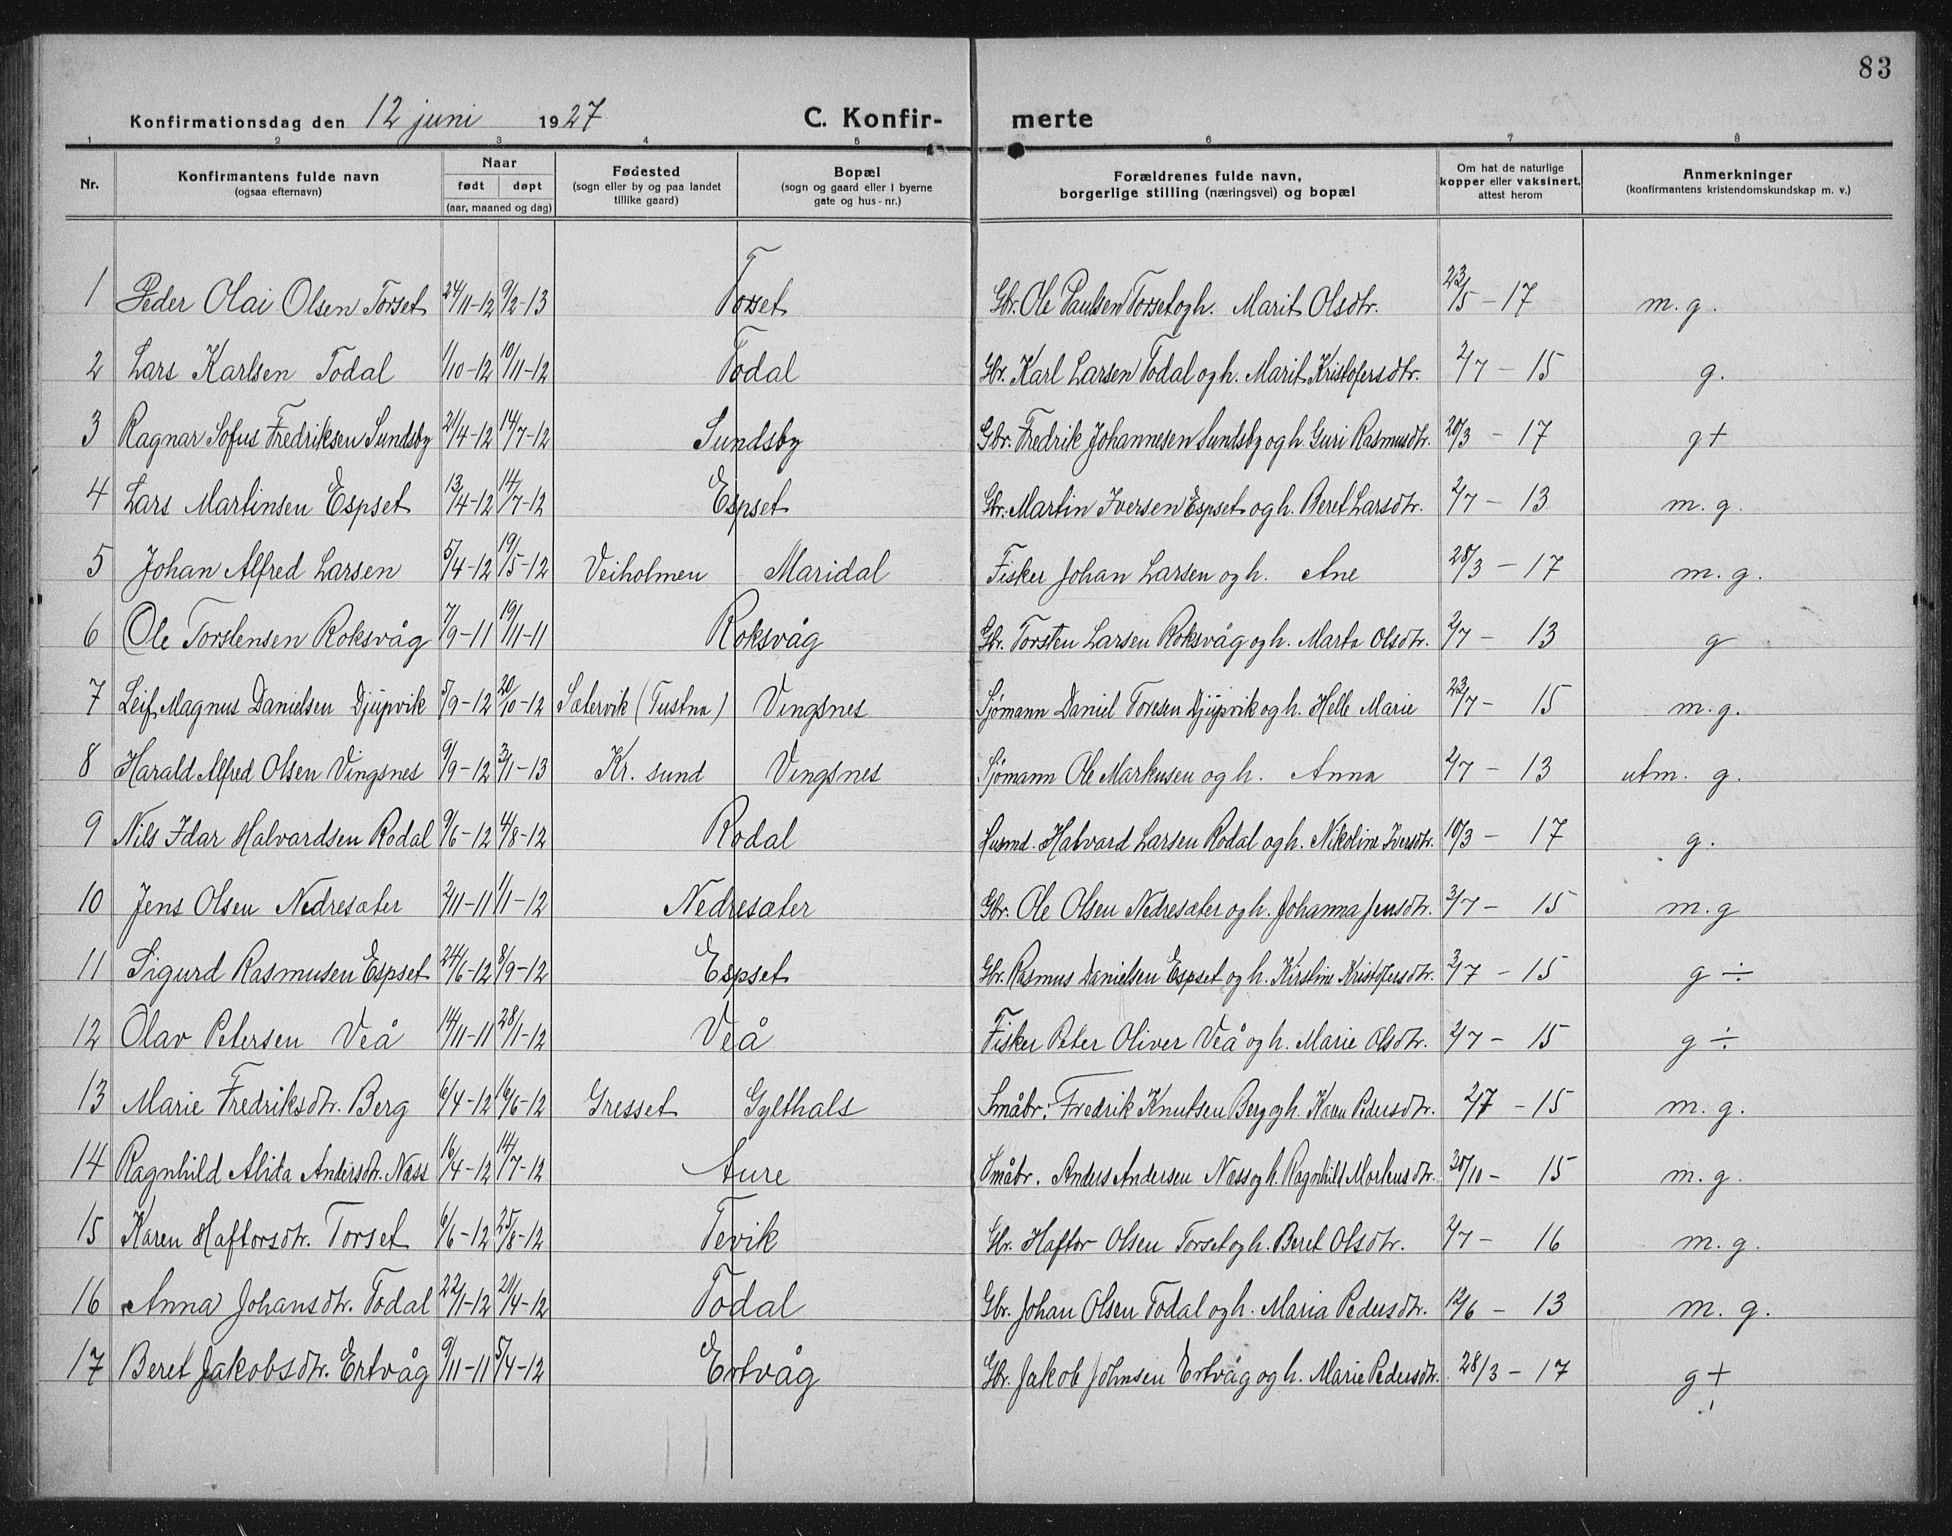 83
Konfirmationsdag den 12 juni 1927 C. Konfir- merte
1 2 3 4 5 6 7 8
Nr. Konfirmantens fulde navn (ogsaa efternavn) Naar født døpt (aar, maaned og dag) Fødested (sogn eller by og paa landet tillike gaard) Bopæl (sogn og gaard eller i byerne gate og hus-nr.) Forældrenes fulde navn, borgerlige stilling (næringsvei) og bopæl Om hat de naturlige kopper eller vaksinert, attest herom Anmerkninger (konfirmantens kristendomskundskap m. v.)
1 Peder Olai Olsen Torset 24/11-12 9/2-13 Torset Gbr. Ole Paulsen Torset og h. Marit Olsdtr. 23/5 - 17 m. g.
2 Lars Karlsen Todal 1/10-12 10/11-12 Todal Gbr. Karl Larsen Todal og h. Marit Kristofersdtr. 2/7 - 15 g.
3 Ragnar Sofus Fredriksen Sundsby 21/4-12 14/7-12 Sundsby Gbr. Fredrik Johannesen Sundsby og h. Guri Rasmusdtr. 20/3 - 17 g+
4 Lars Martinsen Espset 13/4-12 14/7-12 Espset Gbr. Martin Iversen Espset og h. Beret Larsdtr. 2/7 - 13 m. g.
5 Johan Alfred Larsen 5/4-12 19/5-12 Veiholmen Maridal Fisker Johan Larsen og h. Ane 28/3 - 17 m. g.
6 Ole Torstensen Roksvåg 7/9-11 19/11-11 Roksvåg Gbr. Torsten Larsen Roksvåg og h. Marta Olsdtr. 2/7 - 13 g
7 Leif Magnus Danielsen Djupvik 5/9-12 20/10-12 Sætervik (Tustna) Vingsnes Sjømann Daniel Toresen Djupvik og h. Helle Marie 23/7 - 15 m. g.
8 Harald Alfred Olsen Vingsnes 9/9-12 3/1-13 Kr. sund Vingsnes Sjømann Ole Markusen og h. Anna 2/7 - 13 utm. g.
9 Nils Idar Halvardsen Rodal 9/6-12 4/8-12 Rodal Husmd. Halvard Larsen Rodal og h. Nikoline Iversdtr. 10/3 - 17 g.
10 Jens Olsen Nedresæter 2/11-11 1/1-12 Nedresæter Gbr. Ole Olsen Nedresæter og h. Johanna Jensdtr. 3/7 - 15 m. g
11 Sigurd Rasmusen Espset 24/6-12 8/9-12 Espset Gbr. Rasmus Danielsen Espset og h. Kirstine Kristofersdtr. 3/7 - 15 g ÷
12 Olav Petersen Veå 14/11-11 28/1-12 Veå Fisker Peter Oliver Veå og h. Marie Olsdtr. 2/7 - 15 g ÷
13 Marie Fredriksdtr. Berg 6/4-12 16/6-12 Gresset Gylthals Småbr. Fredrik Knutsen Berg og h. Karen Pedersdtr. 2/7 - 15 m. g.
14 Ragnhild Alida Andersdtr. Næss 16/4-12 14/7-12 Aure Småbr. Anders Andersen Næss og h. Ragnhild Markusdtr. 30/10 - 15 m. g.
15 Karen Haftorsdtr. Torset 6/6-12 25/8-12 Tevik Gbr. Haftor Olsen Torset og h. Beret Olsdtr. 2/7 - 16 m. g.
16 Anna Johansdtr. Todal 22/1-12 21/4-12 Todal Gbr. Johan Olsen Todal og h. Maria Pedersdtr. 12/6 - 13 m. g.
17 Beret Jakobsdtr. Ertvåg 9/11-11 5/4-12 Ertvåg Gbr. Jakob Johnsen Ertvåg og h. Marie Pedersdtr. 28/3 - 17 g +